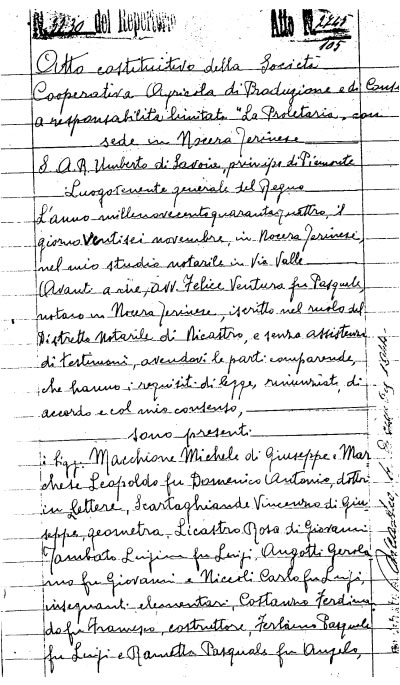 N. 2230 del Repertorio Atto N. 2245
105
Atto costitutivo della Società
Cooperativa Agricola di Produzione e di Cons
a responsabilità limitata "La Proletaria, con
sede in Nocera Terinese
S. A. R. Umberto di Savoia, principe di Piemonte
Luogotenente generale del Regno
L'anno millenovecentoquarantaquattro, il
giorno ventisei novembre, in Nocera Terinese,
nel mio studio notarile in Via Valle
Avanti a me, avv. Felice Ventura fu Pasquale,
notaro in Nocera Terinese, iscritto nel ruolo del
Distretto Notarile di Nicastro, e senza assistenza
di testimoni, avendovi le parti comparende,
che hanno i requisiti di legge, rinunziato, di
accordo e col mio consenso,
sono presenti
i sigg. Macchione Michele di Giuseppe e Mar
chese Leopoldo fu Domenico Antonio, dottori
in lettere, Scartaghiande Vincenzo di Giu
seppe, geometra, Licastro Rosa di Giovanni
Tambato Luigina fu Luigi, Angotti Gerola
mo fu Giovanni e Niccoli Carlo fu Luigi,
insegnanti elementari, Costanzo Ferdinan
do fu Francesco, costruttore, Ferlaino Pasquale
fu Luigi e Rametta Pasquale fu Angelo,